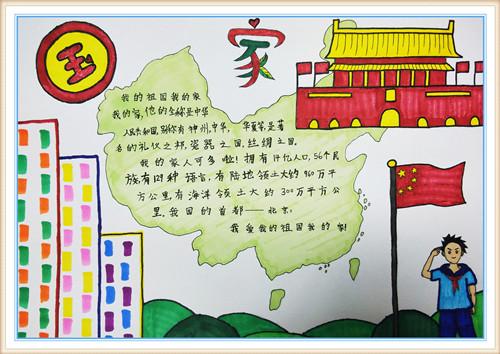 国
家
我的祖国我的家
我的家,他的全称是中华
人民共和国,别称有神州,中华,华夏等,是著
名的礼仪之邦,瓷器之国,丝绸之国.
我的家人可多啦!拥有14亿人口,56个民
族,有129种语言,有陆地领土大约960万平
方公里,有海洋领土大约300万平方公
里.我国的首都——北京;
我爱我的祖国我的家!